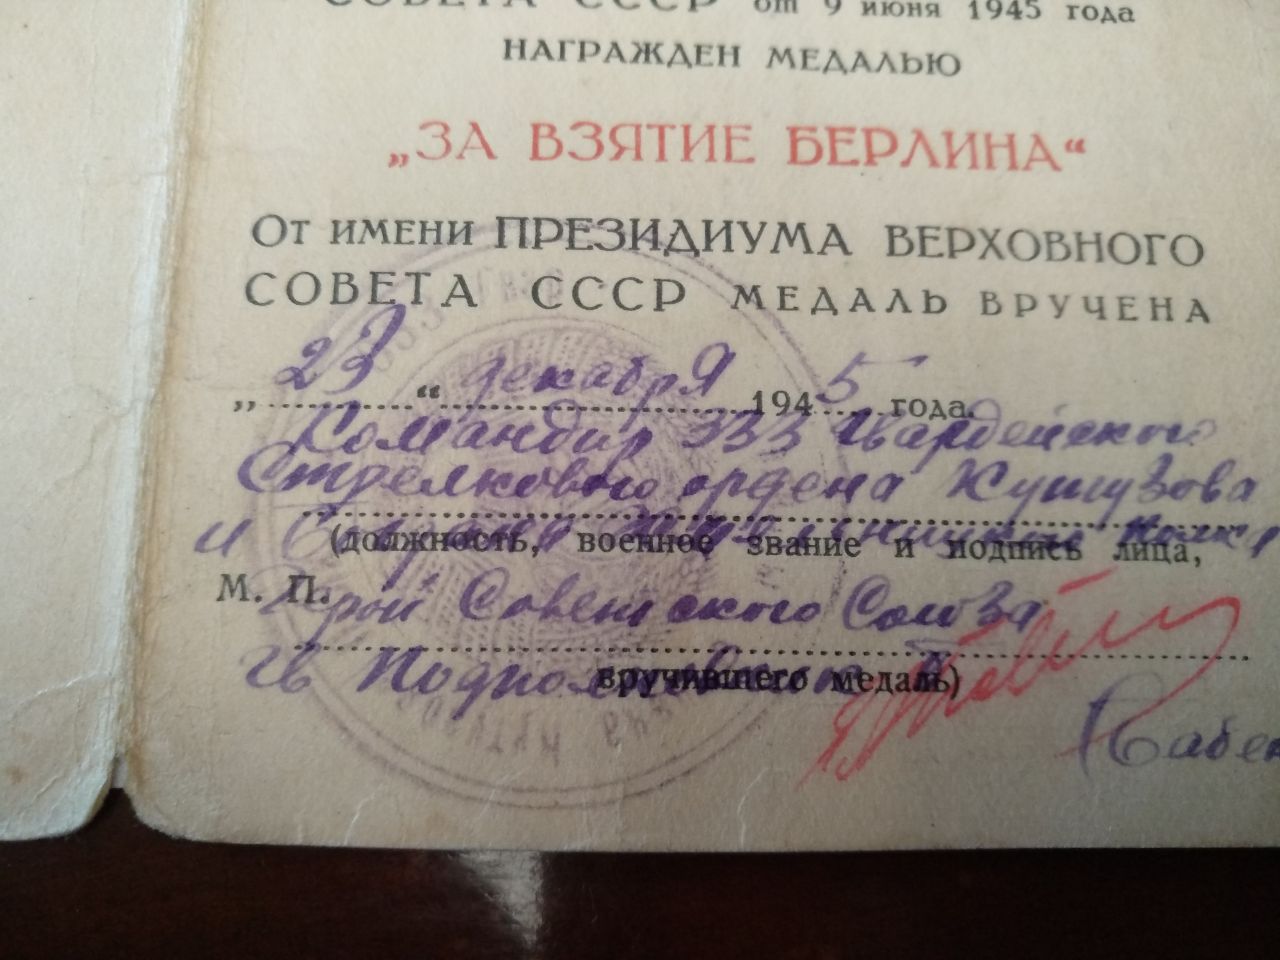 СОВЕТА СССР от 9 июня 1945 года
НАГРАЖДЕН МЕДАЛЬЮ
„ЗА ВЗЯТИЕ БЕРЛИНА“
От имени ПРЕЗИДИУМА ВЕРХОВНОГО
СОВЕТА СССР МЕДАЛЬ ВРУЧЕНА
„23“ декабря 1945 года.
Командир 333 Гвардейского
Стрелкового ордена Кутузова
и полка
(должность, военное звание и подпись лица,
М. П. Герой Советского Союза
гв Подполковник
вручившего медаль)